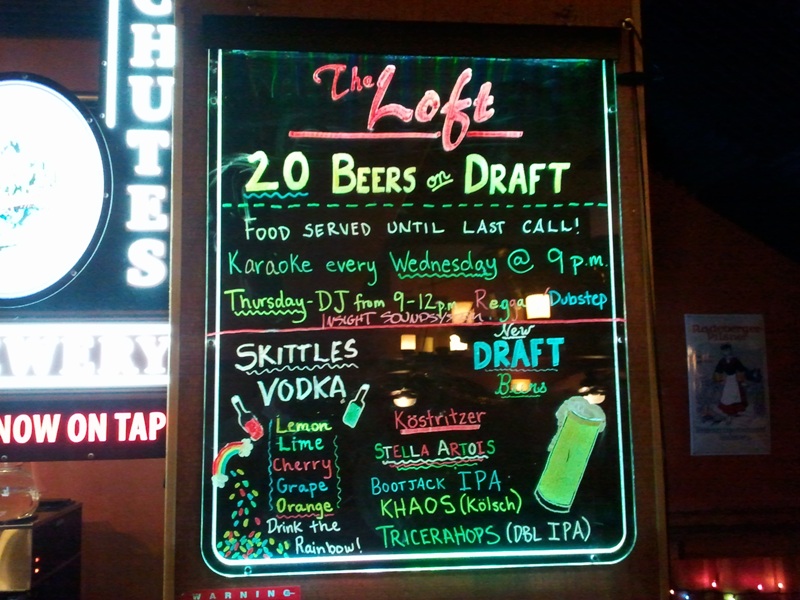 CHUTES
WERY
NOW ON TAP
The Loft
20 BEERS on DRAFT
FOOD SERVED UNTIL LAST CALL!
Karaoke every Wednesday @ 9 p.m.
Thursday-DJ from 9-12p.m. Reggae/Dubstep
INSIGHT SOUNDSYSTEM
SKITTLES
VODKA
Lemon
Lime
Cherry
Grape
Orange
Drink the
Rainbow!
New
DRAFT
Beers
Köstritzer
STELLA ARTOIS
BOOTJACK IPA
KHAOS (Kölsch)
TRICERAHOPS (DBL IPA)
WARNING